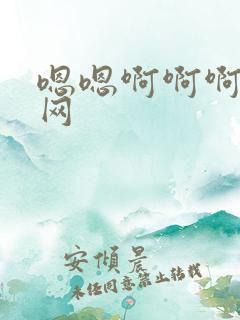 嗯嗯啊啊啊
网
安惧晨
未经同意禁止转载